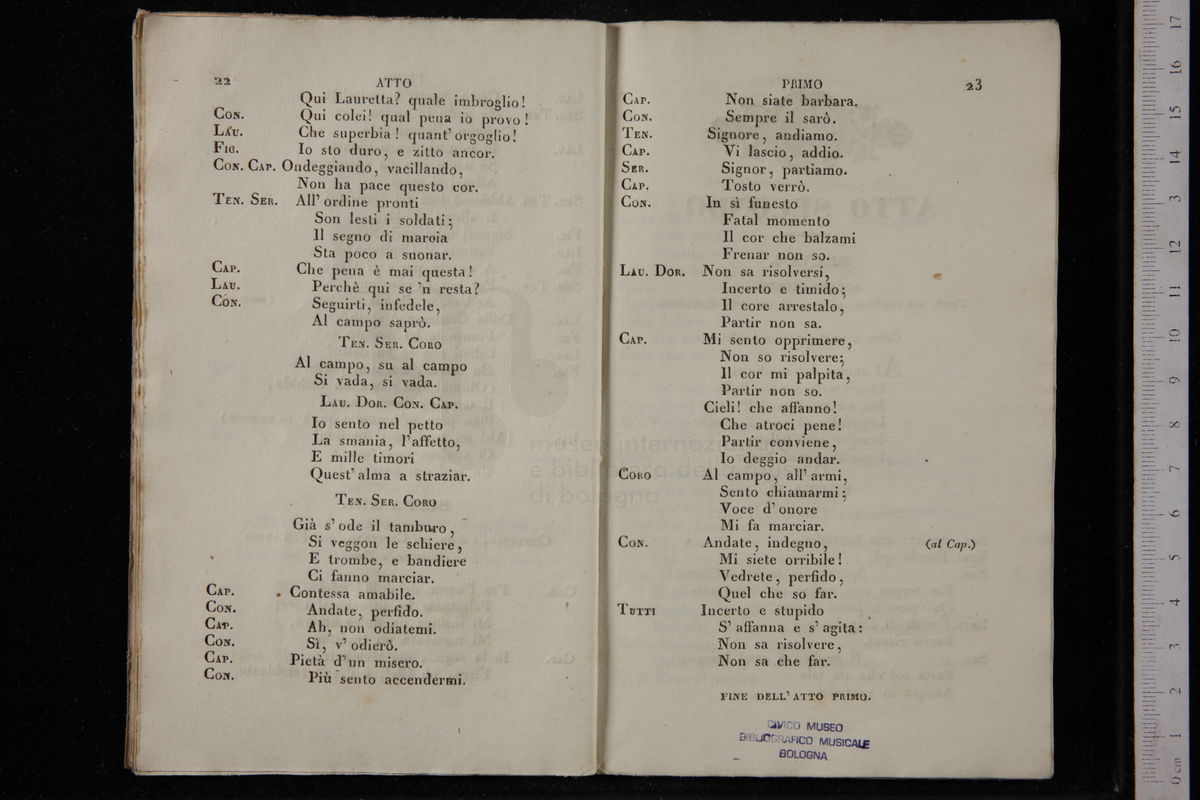 22 ATTO
Qui Lauretta? quale imbroglio!
Con. Qui colei! qual pena io provo!
Lau. Che superbia! quant' orgoglio!
Fig. Io sto duro, e zitto ancor.
Con. Cap. Ondeggiando, vacillando,
Non ha pace questo cor.
Ten. Ser. All' ordine pronti
Son lesti i soldati;
Il segno di marcia
Sta poco a suonar.
Cap. Che pena è mai questa!
Lau. Perchè qui se 'n resta?
Con. Seguirti, infedele,
Al campo saprò.
Ten. Ser. Coro
Al campo, su al campo
Si vada, si vada.
Lau. Dor. Con. Cap.
Io sento nel petto
La smania, l'affetto,
E mille timori
Quest' alma a straziar.
Ten. Ser. Coro
Già s' ode il tamburo,
Si veggon le schiere,
E trombe, e bandiere
Ci fanno marciar.
Cap. Contessa amabile.
Con. Andate, perfido.
Cap. Ah, non odiatemi.
Con. Sì, v' odierò.
Cap. Pietà d' un misero.
Con. Più sento accendermi.
PRIMO 23
Cap. Non siate barbara.
Con. Sempre il sarò.
Ten. Signore, andiamo.
Cap. Vi lascio, addio.
Ser. Signor, partiamo.
Cap. Tosto verrò.
Con. In sì funesto
Fatal momento
Il cor che balzami
Frenar non so.
Lau. Dor. Non sa risolversi,
Incerto e timido;
Il core arrestalo,
Partir non sa.
Cap. Mi sento opprimere,
Non so risolvere;
Il cor mi palpita,
Partir non so.
Cieli! che affanno!
Che atroci pene!
Partir conviene,
Io deggio andar.
Coro Al campo, all' armi,
Sento chiamarmi;
Voce d' onore
Mi fa marciar.
Con. Andate, indegno, (al Cap.)
Mi siete orribile!
Vedrete, perfido,
Quel che so far.
Tutti Incerto e stupido
S' affanna e s' agita:
Non sa risolvere,
Non sa che far.
FINE DELL' ATTO PRIMO.
CIVICO MUSEO
BIBLIOGRAFICO MUSICALE
BOLOGNA